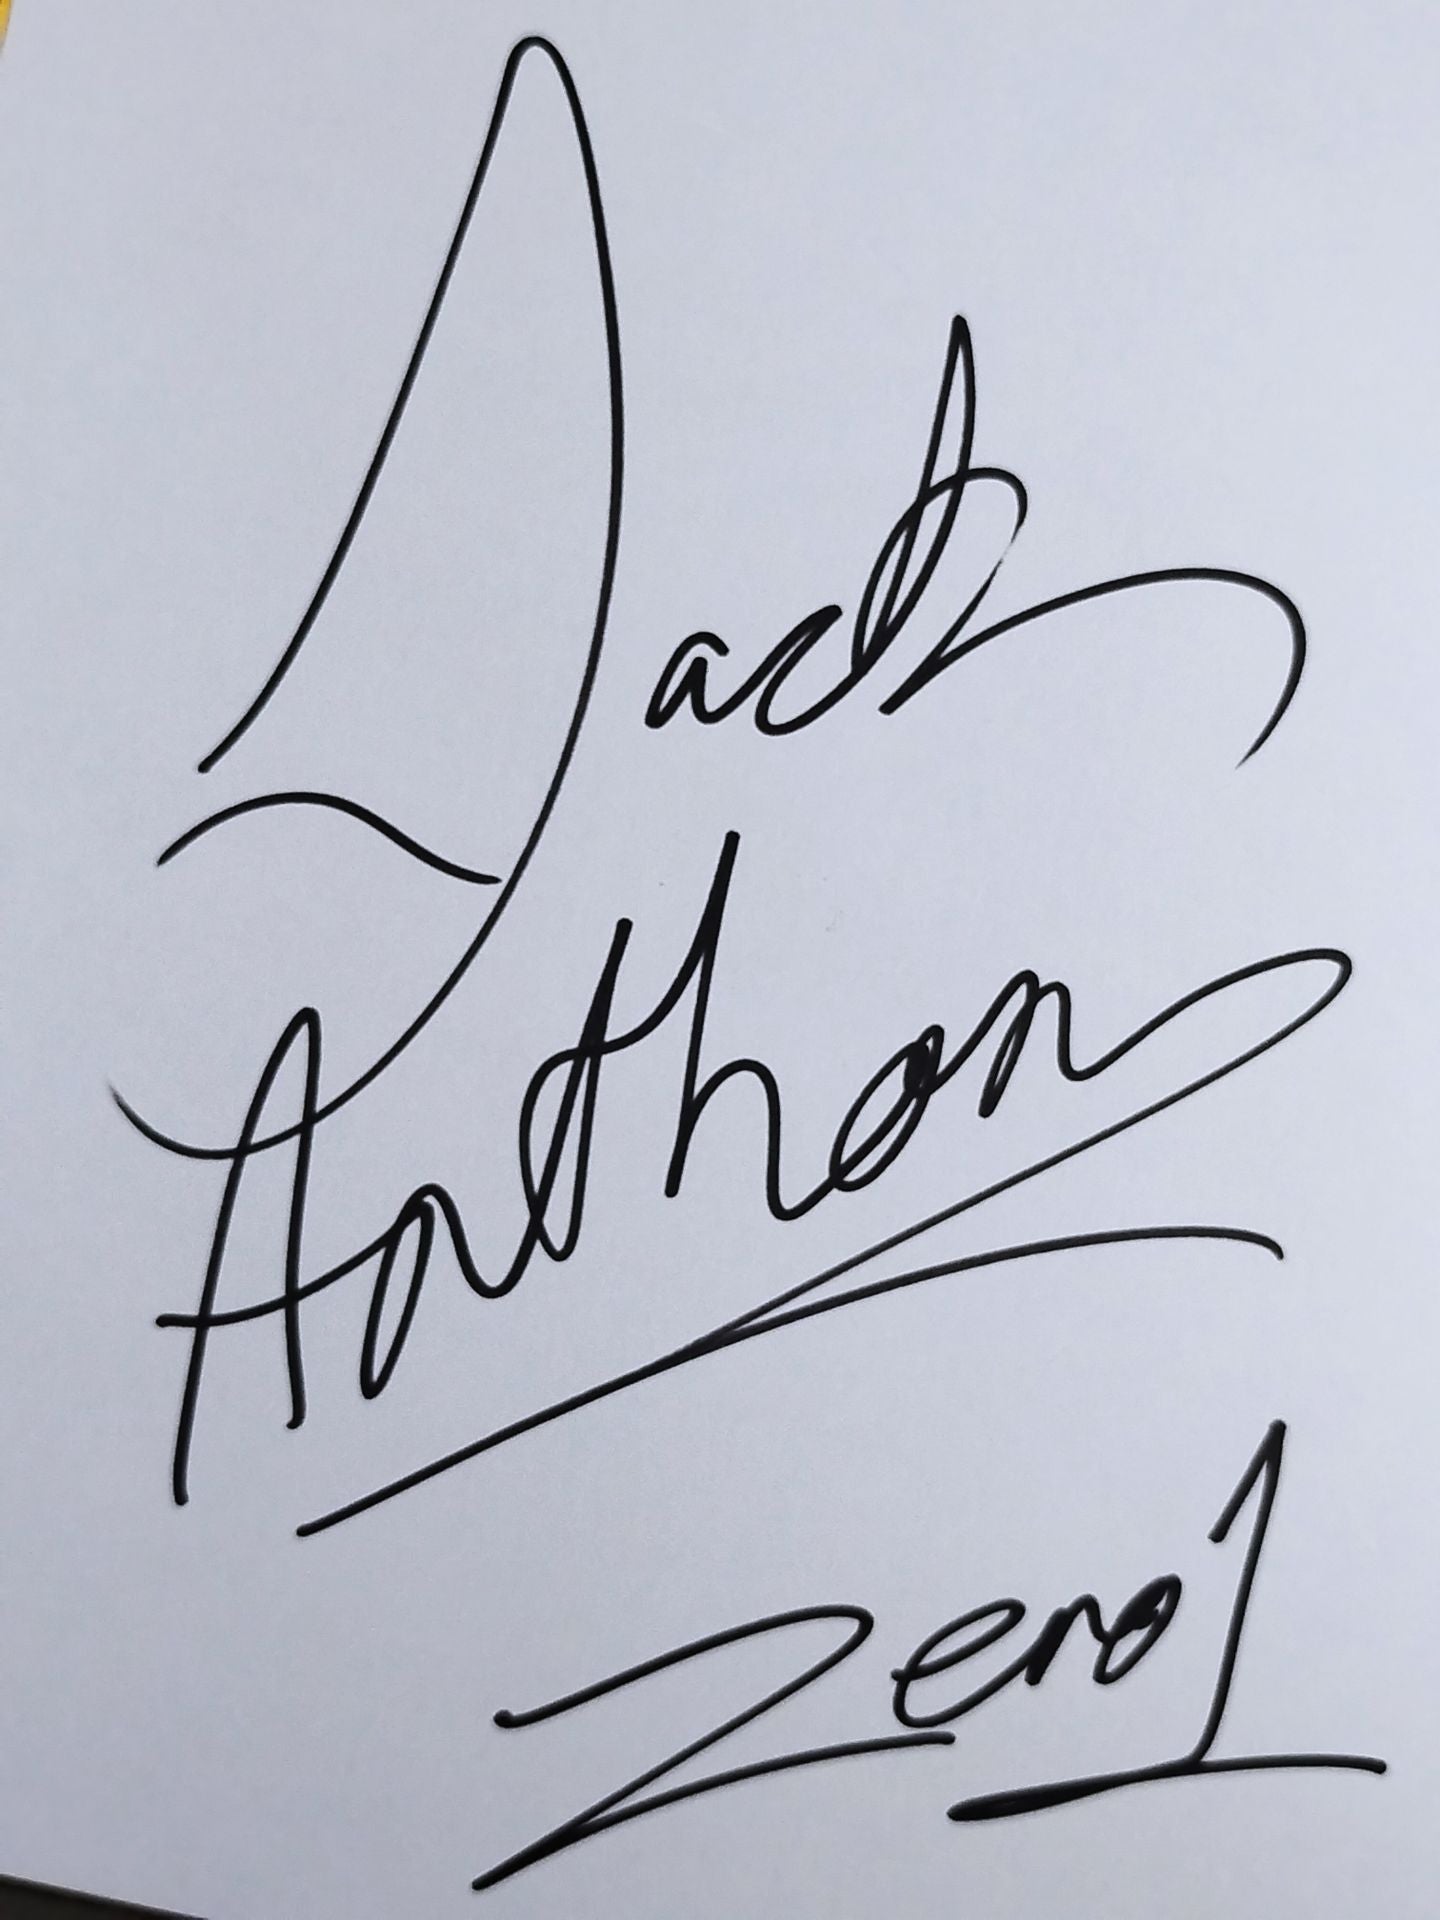 Jack
Anthony
Zero1